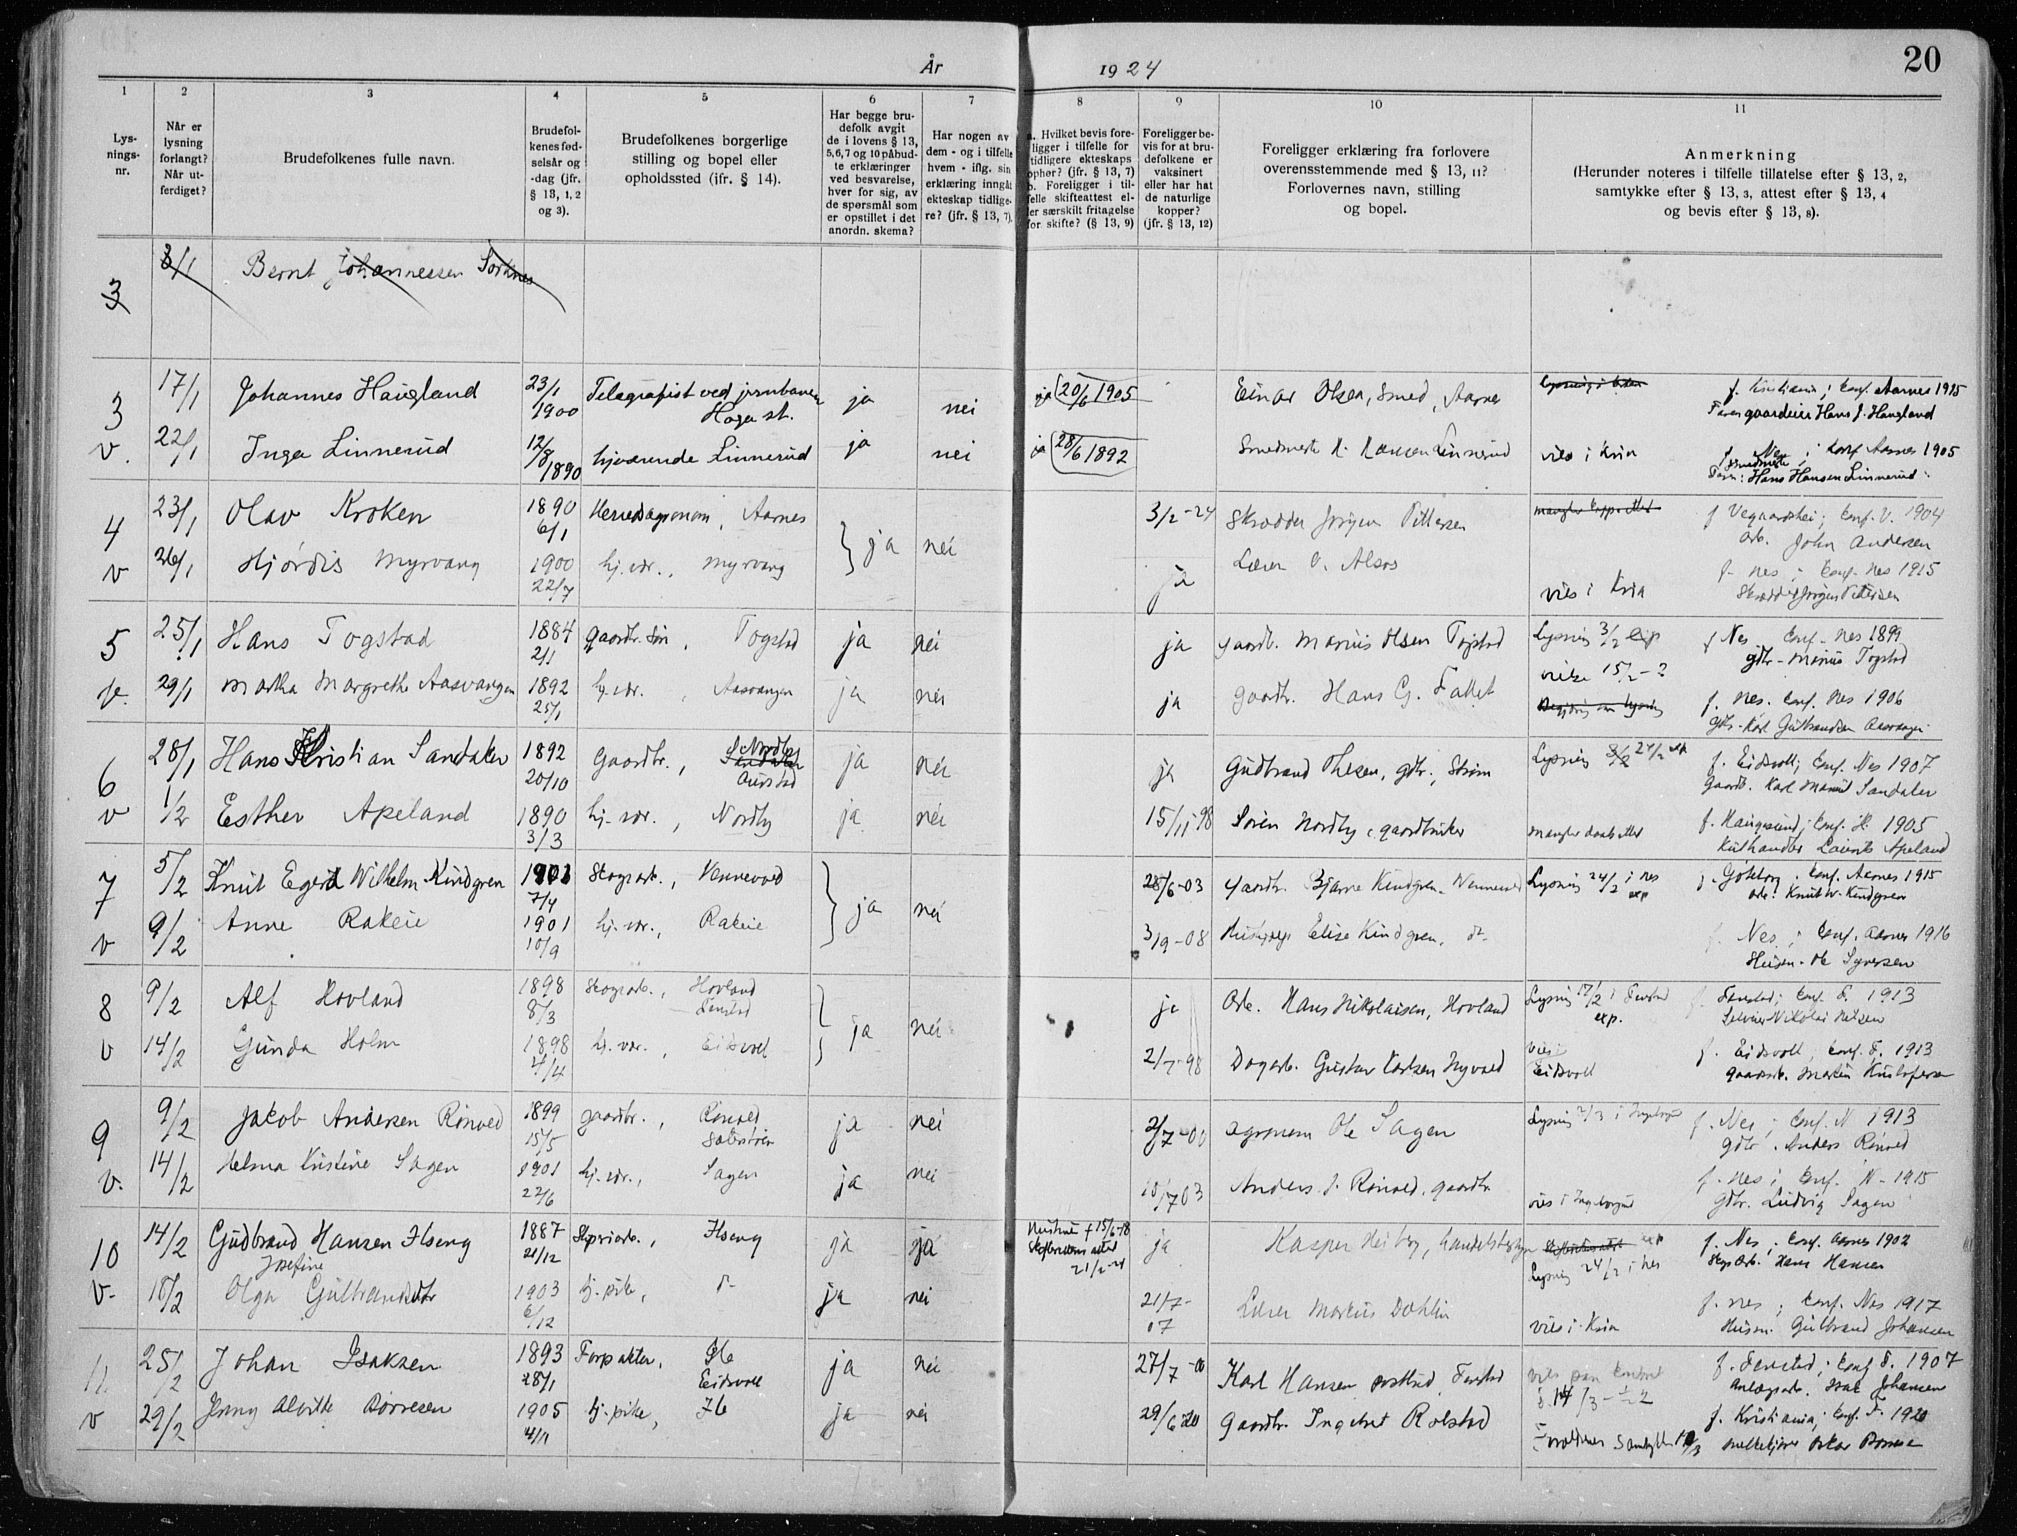 År 1924 20
1 2 3 4 5 6 7 8 9 10 11
Lys-
nings-
nr.
Når er
lysning
forlangt?
Når ut-
ferdiget?
Brudefolkenes fulle navn.
Brudefol-
kenes fød-
selsår og
-dag (jfr.
§ 13, 1, 2
og 3).
Brudefolkenes borgerlige
stilling og bopel eller
opholdssted (jfr. § 14).
Har begge bru-
defolk avgit
de i lovens § 13,
5,6,7 og 10 påbud-
te erklæringer
ved besvarelse,
hver for sig, av
de spørsmål som
er opstillet i det
anordn. skema?
Har nogen av
dem - og i tilfelle
hvem - iflg. sin
erklæring inngåt
ekteskap tidlige-
re? (jfr. § 13, 7).
a. Hvilket bevis fore-
ligger i tilfelle for
tidligere ekteskaps
ophør? (jfr. § 13, 7)
b. Foreligger i til-
felle skifteattest el-
ler særskilt fritagelse
for skifte? (§ 13, 9)
Foreligger be-
vis for at bru-
defolkene er
vaksinert
eller har hat
de naturlige
kopper?
(jfr. § 13, 12)
Foreligger erklæring fra forlovere
overensstemmende med § 13, 11?
Forlovernes navn, stilling
og bopel.
Anmerkning
(Herunder noteres i tilfelle tillatelse efter § 13, 2,
samtykke efter § 13, 3, attest efter § 13, 4
og bevis efter § 13, 8).
3 3/1 Bernt Johannessen Sørknes
3 17/1 Johannes Haugland 23/1 1900 Telegrafist ved jernbanen Haga st. ja nei ja 20/6 1905 Einar Olsen, Smed, Aarnes f. Kristiania; Conf. Aarnes 1915
gaardeier Hans J. Haugland
v. 22/1 Inga Linnerud 12/8 1890 hjværende Linnerud ja nei ja 28/6 1892 Smedmester H. Hansen Linnerud vies i Kria f. Nes; Conf Aarnes 1905
smedmester Hans Hansen Linnerud
4 23/1 Olav Kroken 1890 6/1 Herredsagronom, Aarnes ja nei 3/2-24 Skrædder Jørgen Pettersen f Vegaardshei; Conf. V. 1904
arb. John Andersen
v 26/1 Hjørdis Myrvang 1900 22/7 hj. vær., Myrvang ja Lærer O. Alsos vies i Kria f. Nes; Conf. Nes 1915
Skrædder Jørgen Pettersen
5 25/1 Hans Togstad 1884 2/1 gaardbr. søn, Togstad ja nei ja gaardb. Marius Olsen Togstad Lysning 3/2 f Nes Conf. Nes 1899
vielse 15/2-? gdbr. Marius Togstad
v. 29/1 Martha Margrethe Aasvangen 1892 25/1 hj. vær., Aasvangen ja nei ja gaardbr. Hans G. Fallet f. Nes. Conf. Nes 1906
gdbr. Karl Gulbrandsen Aasvangen
6 28/1 Hans Kristian Sandaker 1892 20/10 Gaardbr., Nordby Aurstad ja nei ja Gudbrand Thesen, gdbr., Strøm Lysning 24/2 exp f. Eidsvoll; Conf. Nes 1907
Gaardb. Karl Sandaker
v 1/2 Esther Apeland 1890 3/3 hj. vær., Nordby ja nei 15/11-98 Søren Nordby, gaardbruker mangler daabsattest f. Haugesund; Conf. H. 1905
Laurits Apeland
7 5/2 Knut Egerd Wilhelm Kindgren 7/4 Skogsarb., Vennevold ja nei 28/6-03 gaardbr. Bjarne Kindgren Vennevold Lysning 24/2 i Nes exp f. Göteborg. Conf. Aarnes 1915
arb. Knut W. Kindgren
v 9/2 Anne Rakeie 1901 10/9 hj. vær., Rakeie 3/9-08 Elise Kindgren, do f. Nes; Conf. Aarnes 1916
Husm. Ole Syversen
8 9/2 Alf Hovland 1898 8/3 Skogsarb., Hovland Fenstad ja nei ja Arb. Hans Nikolaisen, Hovland Lysning 17/2 i Fenstad exp. f. Fenstad; Conf. F. 1913
Selveier Nikolai Nilsen
v 14/2 Gunda Holm 1898 4/4 hj. vær., Eidsvoll 2/7-98 Dagarb. Gustav Karlsen Nyvold vies i Eidsvoll f. Eidsvoll; Conf. F. 1913
gaardarb. Martin Kristofersen
9 9/2 Jakob Andersen Rønved 1899 15/5 gaardbr., Rønved ja nei 2/7-00 agronom Ole Sagen Lysning 2/3 i f. Nes; Conf. N 1913
Gdbr. Anders Rønved
v. 14/2 Helma Kristine Sagen 1901 22/6 hj. vær., Sagen ja nei 10/7 03 Anders J. Rønved, gaardbr vies i f. Nes; Conf. N. 1915
Gdbr. Ludvig Sagen
10 14/2 Gudbrand Hansen Ilseng 1887 21/12 Ilseng ja ja Hustrue † 15/6-18 21/2-24 ja Kasper Heiberg, Lysning 24/2 i Nes f. Nes; Conf. Aarnes 1902
Skogsarb. Hans Hansen
v. 16/2 Olga Josefine Gulbrandsdtr 1903 6/12 hj. pike, do ja nei 21/7-07 Lærer Markus Dahlin vies i Kria f. Nes; Conf. Nes 1917
Husm. Gulbrand Johansen
11 25/2 Johan Isaksen 1893 28/1 Forpakter, Ile Eidsvoll ja nei 27/7-00 Karl Hansen postbud, Fenstad f. Fenstad; Conf F. 1907
Anlægsarb. Isak Johansen
v 29/2 Jenny Alvilde Børresen 1905 4/11 hj. pike, Ile ja nei 29/6 20 Gaardbr. Ingebret Rolstad Forældrenes samtykke f. Kristiania; Conf. F. 1920
melkekjører Oskar Børresen